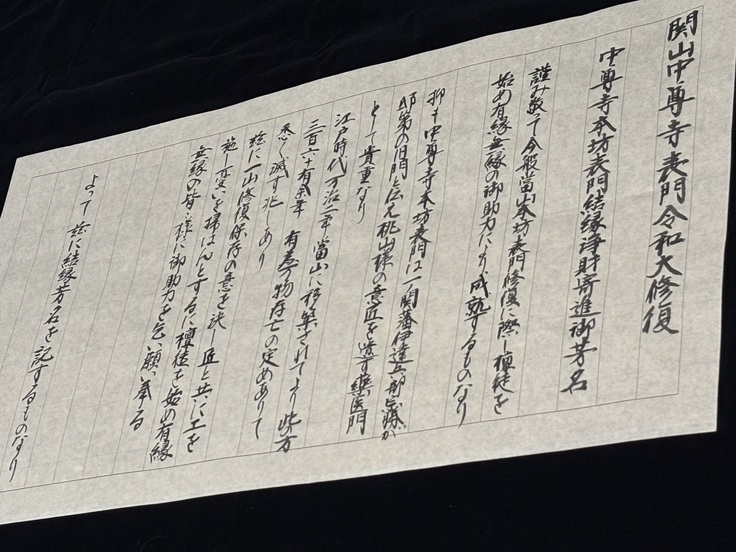 関山中尊寺表門令和大修復
中尊寺本坊表門結縁浄財寄進御芳名
謹み敬って今般当山本坊表門修復に際し檀徒を
始め有縁無縁の御助力により成熟するものなり
抑も中尊寺本坊表門は一ノ関藩伊達兵部宗勝が
邸第の旧門と伝え桃山様の意匠を遺す薬医門
として貴重なり
江戸時代万治二年当山に移築されてより此方
三百六十有余年 有為の物存亡の定めありて
悉く滅す兆しあり
茲に一山修復保存の意を決し匠と共に工を
施し妄を掃はんとするに檀徒を始め有縁
無縁の皆々様に御助力を乞い願い奉る
よって茲に結縁芳名を記するものなり